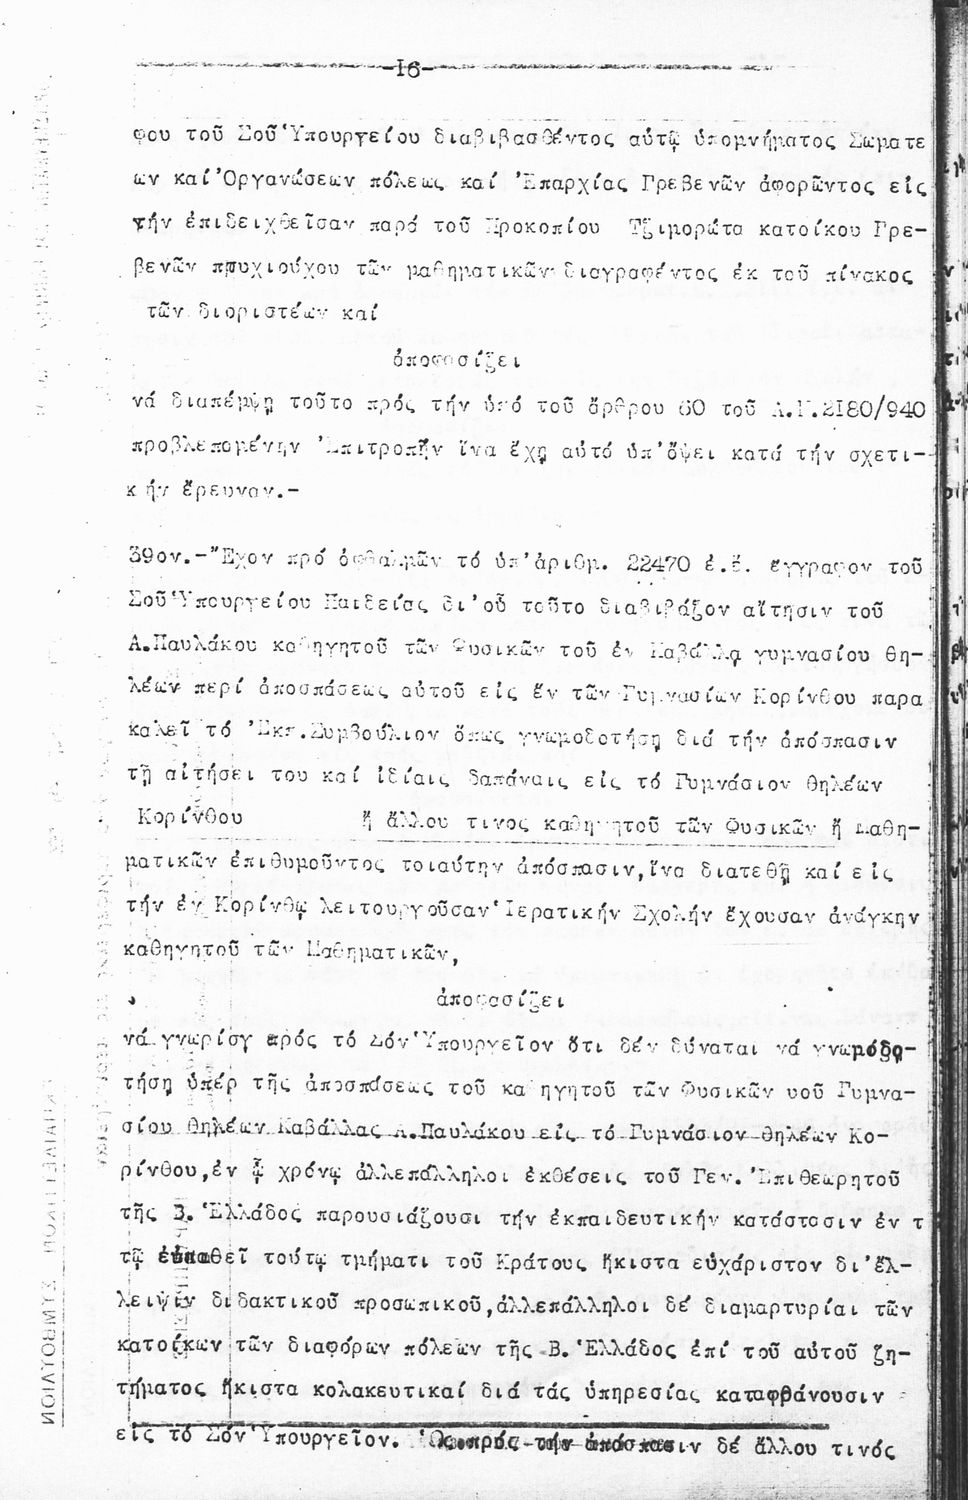 -I6-
φου τοῦ Σοῦ Ὑπουργείου διαβιβασθέντος αὐτῷ ὑπομνήματος Σωματε
ων καί Ὀργανώσεων πόλεως καί Ἐπαρχίας Γρεβενῶν ἀφορῶντος εἰς
τήν ἐπιδειχθεῖσαν παρά τοῦ Προκοπίου Τζιμορώτα κατοίκου Γρε-
βενῶν πτυχιούχου τῶν μαθηματικῶν διαγραφέντος ἐκ τοῦ πίνακος
τῶν διοριστέων καί
ἀποφασίζει
νά διαπέμψῃ τοῦτο πρός τήν ὑπό τοῦ ἄρθρου 60 τοῦ Α.Ν.2I80/940
προβλεπομένην Ἐπιτροπήν ἵνα ἔχῃ αὐτό ὑπ'ὄψει κατά τήν σχετι-
κήν ἔρευναν.-
39ον.-Ἔχον πρό ὀφθαλμῶν τό ὑπ'ἀριθμ. 22470 ἐ.ἔ. ἔγγραφον τοῦ
Σοῦ Ὑπουργείου Παιδείας δι'οὗ τοῦτο διαβιβάζον αἴτησιν τοῦ
Α.Παυλάκου καθηγητοῦ τῶν Φυσικῶν τοῦ ἐν Καβάλλᾳ γυμνασίου θη-
λέων περί ἀποσπάσεως αὐτοῦ εἰς ἕν τῶν Γυμνασίων Κορίνθου παρα
καλεῖ τό Ἐκπ.Συμβούλιον ὅπως γνωμοδοτήσῃ διά τήν ἀπόσπασιν
τῇ αἰτήσει του καί ἰδίαις δαπάναις εἰς τό Γυμνάσιον θηλέων
Κορίνθου ἤ ἄλλου τινος καθηγητοῦ τῶν Φυσικῶν ἤ Μαθη-
ματικῶν ἐπιθυμοῦντος τοιαύτην ἀπόσπασιν,ἵνα διατεθῇ καί εἰς
τήν ἐν Κορίνθῳ λειτουργοῦσαν Ἱερατικήν Σχολήν ἔχουσαν ἀνάγκην
καθηγητοῦ τῶν Μαθηματικῶν,
ἀποφασίζει
νά γνωρίσῃ πρός τό Σόν Ὑπουργεῖον ὅτι δέν δύναται νά γνωμοδο-
τήσῃ ὑπέρ τῆς ἀποσπάσεως τοῦ καθηγητοῦ τῶν Φυσικῶν υοῦ Γυμνα-
σίου θηλέων Καβάλλας Α.Παυλάκου εἰς τό Γυμνάσιον θηλέων Κο-
ρίνθου,ἐν ᾧ χρόνῳ ἀλλεπάλληλοι ἐκθέσεις τοῦ Γεν.Ἐπιθεωρητοῦ
τῆς Β.Ἑλλάδος παρουσιάζουσι τήν ἐκπαιδευτικήν κατάστασιν ἐν τ
τῷ εὐπαθεῖ τούτῳ τμήματι τοῦ Κράτους ἥκιστα εὐχάριστον δι'ἔλ-
λειψιν διδακτικοῦ προσωπικοῦ,ἀλλεπάλληλοι δέ διαμαρτυρίαι τῶν
κατοίκων τῶν διαφόρων πόλεων τῆς Β.Ἑλλάδος ἐπί τοῦ αὐτοῦ ζη-
τήματος ἥκιστα κολακευτικαί διά τάς ὑπηρεσίας καταφθάνουσιν
εἰς τό Σόν Ὑπουργεῖον. Ὡς πρός τήν ἀπόσπασιν δέ ἄλλου τινός
ΣΥΜΒΟΥΛΙΟΝ